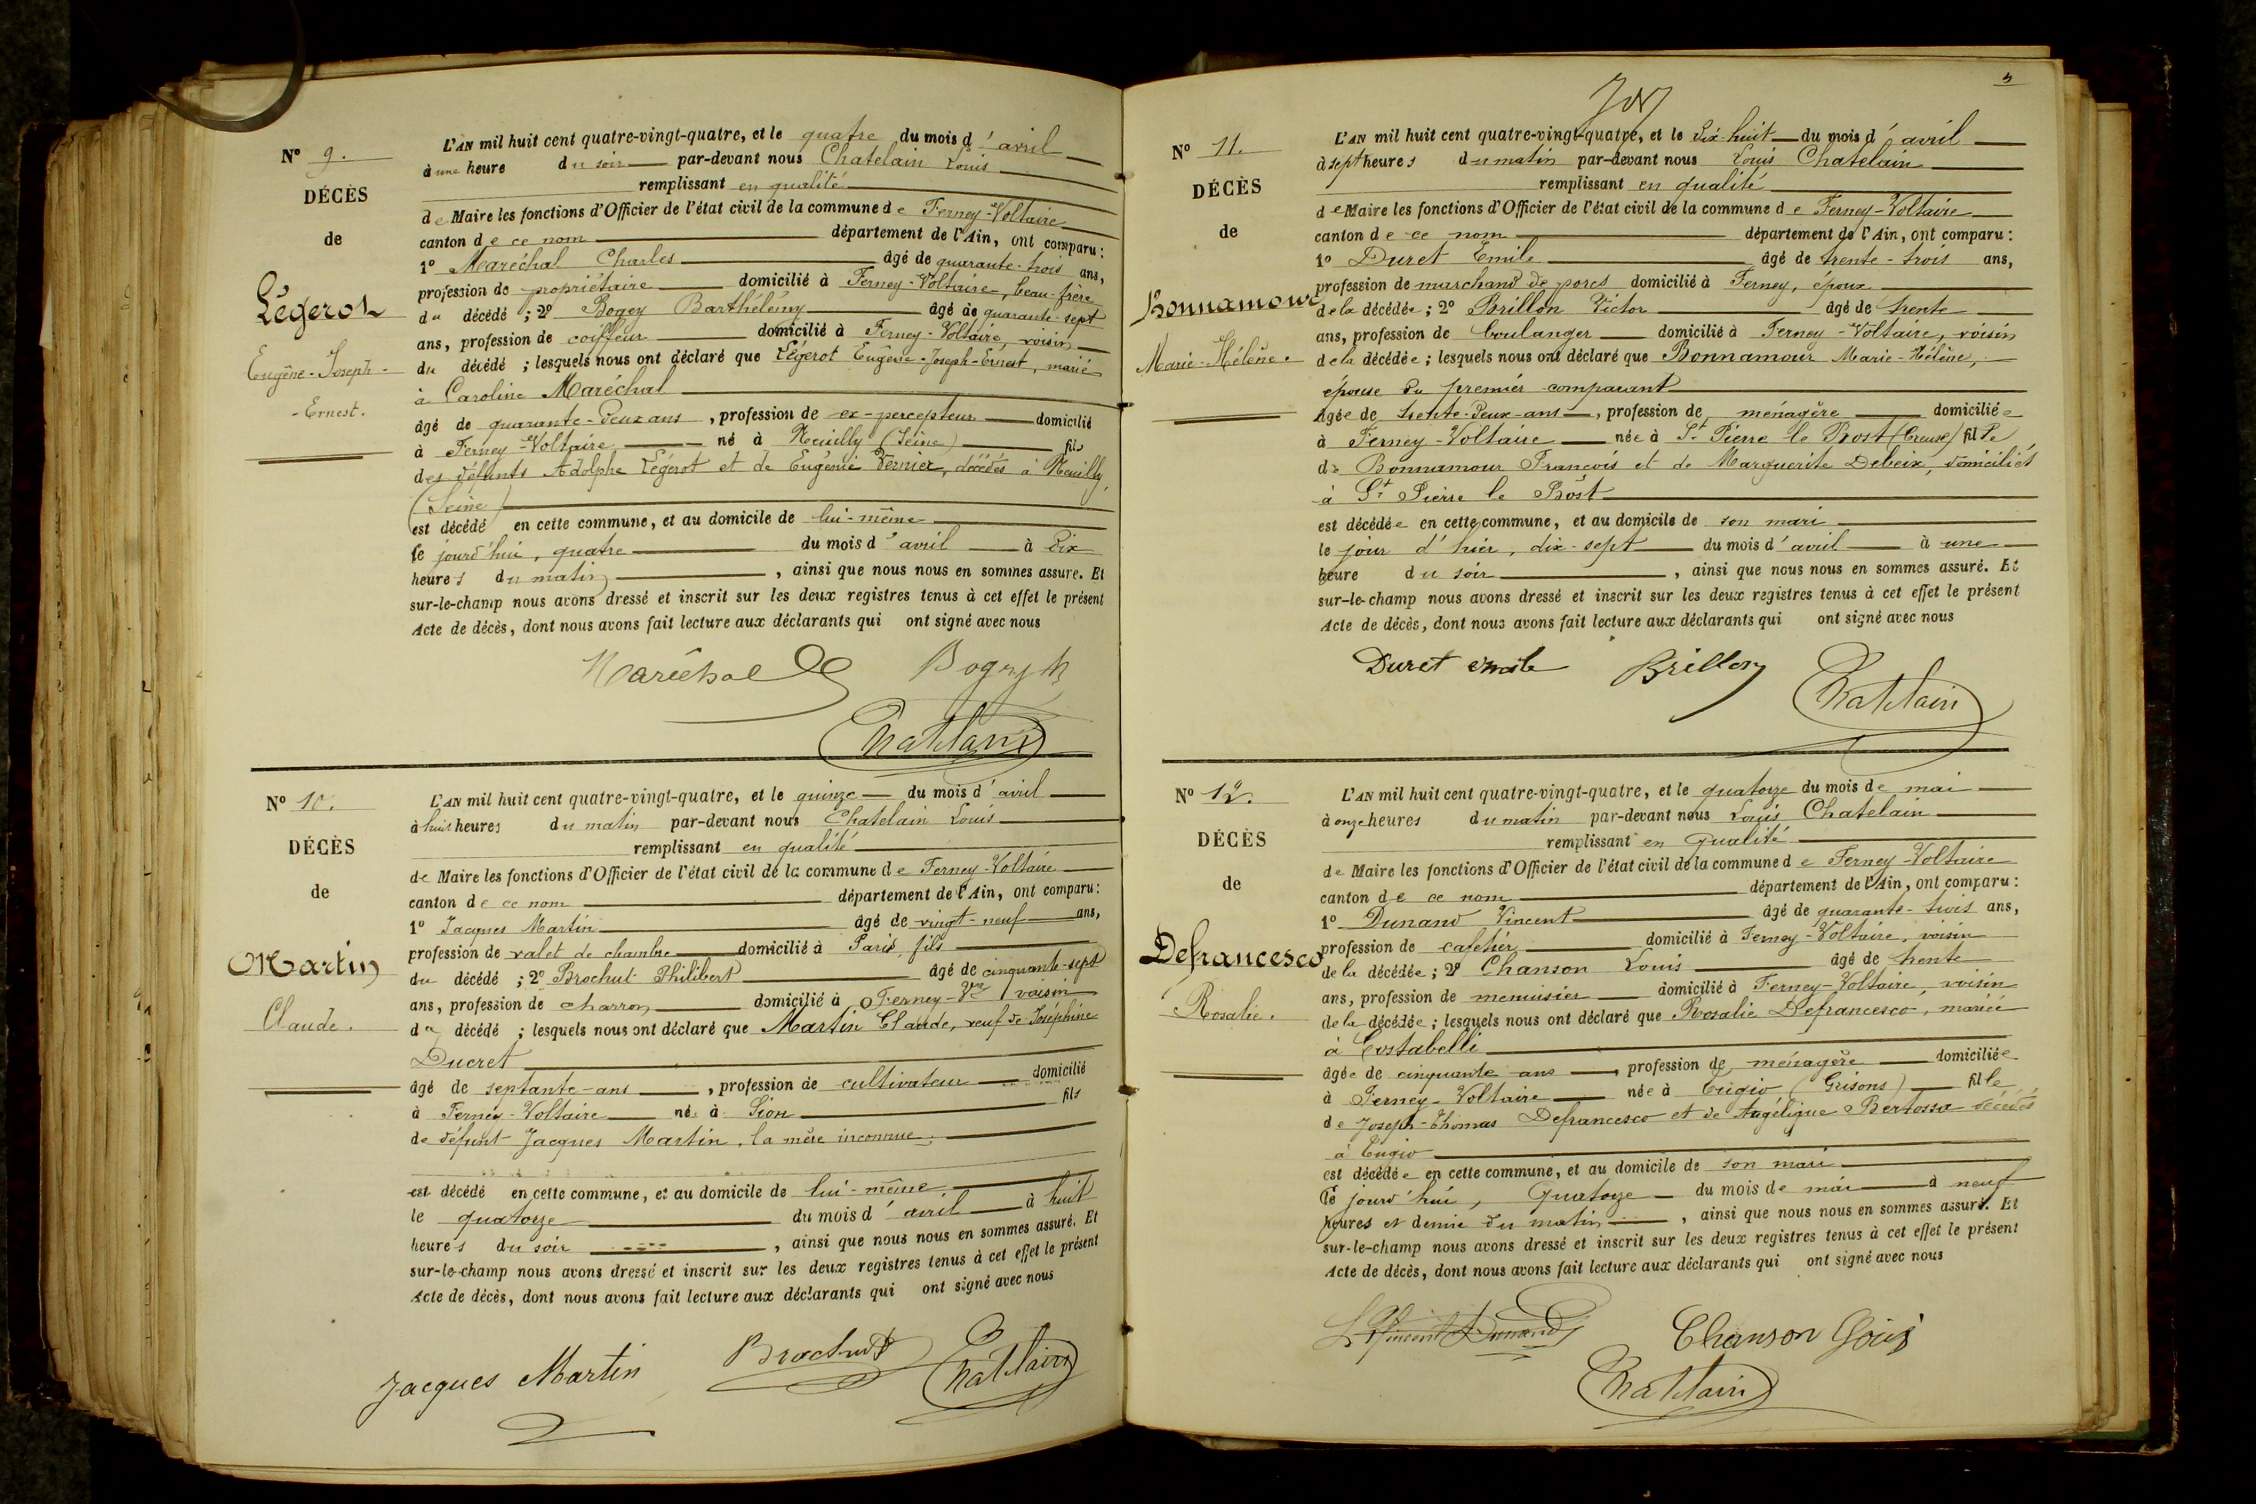 Nº 9.
DÉCÈS
de
Légerot
Eugène-Joseph-
-Ernest.
L'AN mil huit cent quatre-vingt-quatre, et le quatre du mois d'avril
à une heure du soir par-devant nous Chatelain Louis
remplissant en qualité
de Maire les fonctions d'Officier de l'état civil de la commune de Ferney-Voltaire
canton de ce nom département de l'Ain, ont comparu:
1º Maréchal Charles âgé de quarante-trois ans,
profession de propriétaire domicilié à Ferney-Voltaire, beau-frère
du décédé; 2º Bogey Barthélémy âgé de quarante-sept
ans, profession de coiffeur domicilié à Ferney-Voltaire, voisin
du décédé; lesquels nous ont déclaré que Légerot Eugène-Joseph-Ernest, marié
à Caroline Maréchal
âgé de quarante-deux ans, profession de ex-percepteur domicilié
à Ferney-Voltaire né à Neuilly (Seine) fils
des défunts Adolphe Légerot et de Eugénie Vernier, décédés à Neuilly,
(Seine)
est décédé en cette commune, et au domicile de lui-même
le jourd'hui, quatre du mois d'avril à dix
heures du matin, ainsi que nous nous en sommes assuré. Et
sur-le-champ nous avons dressé et inscrit sur les deux registres tenus à cet effet le présent
Acte de décès, dont nous avons fait lecture aux déclarants qui ont signé avec nous
Maréchal Bogey
Chatelain
Nº 10.
DÉCÈS
de
Martin
Claude.
L'AN mil huit cent quatre-vingt-quatre, et le quinze du mois d'avril
à huit heures du matin par-devant nous Chatelain Louis
remplissant en qualité
de Maire les fonctions d'Officier de l'état civil de la commune de Ferney-Voltaire
canton de ce nom département de l'Ain, ont comparu:
1º Jacques Martin âgé de vingt-neuf ans,
profession de valet de chambre domicilié à Paris, fils
du décédé; 2º Brochut Philibert âgé de cinquante-sept
ans, profession de charron domicilié à Ferney-Vre voisin
du décédé; lesquels nous ont déclaré que Martin Claude, veuf de Joséphine
Ducret
âgé de septante-ans, profession de cultivateur domicilié
à Ferney-Voltaire né à Sion fils
de défunt Jacques Martin, la mère inconnue.
est décédé en cette commune, et au domicile de lui-même
le quatorze du mois d'avril à huit
heures du soir, ainsi que nous nous en sommes assuré. Et
sur-le-champ nous avons dressé et inscrit sur les deux registres tenus à cet effet le présent
Acte de décès, dont nous avons fait lecture aux déclarants qui ont signé avec nous
Jacques Martin Brochut Chatelain
Nº 11.
DÉCÈS
de
Bonnamour
Marie-Hélène.
L'AN mil huit cent quatre-vingt-quatre, et le dix-huit du mois d'avril
à sept heures du matin par-devant nous Louis Chatelain
remplissant en qualité
de Maire les fonctions d'Officier de l'état civil de la commune de Ferney-Voltaire
canton de ce nom département de l'Ain, ont comparu:
1º Duret Emile âgé de trente-trois ans,
profession de marchand de porcs domicilié à Ferney, époux
de la décédée; 2º Brillon Victor âgé de trente
ans, profession de boulanger domicilié à Ferney-Voltaire, voisin
de la décédée; lesquels nous ont déclaré que Bonnamour Marie-Hélène,
épouse du premier comparant
âgée de trente-deux-ans, profession de ménagère domiciliée
à Ferney-Voltaire née à St Pierre le Bost (Creuse) fille
de Bonnamour François et de Marguerite Debeix, domiciliés
à St Pierre le Bost
est décédée en cette commune, et au domicile de son mari
le jour d'hier, dix-sept du mois d'avril à une
heure du soir, ainsi que nous nous en sommes assuré. Et
sur-le-champ nous avons dressé et inscrit sur les deux registres tenus à cet effet le présent
Acte de décès, dont nous avons fait lecture aux déclarants qui ont signé avec nous
Duret emile Brillon
Chatelain
Nº 12.
DÉCÈS
de
Defrancesco
Rosalie.
L'AN mil huit cent quatre-vingt-quatre, et le quatorze du mois de mai
à onze heures du matin par-devant nous Louis Chatelain
remplissant en qualité
de Maire les fonctions d'Officier de l'état civil de la commune de Ferney-Voltaire
canton de ce nom département de l'Ain, ont comparu:
1º Dunand Vincent âgé de quarante-trois ans,
profession de cafetier domicilié à Ferney-Voltaire, voisin
de la décédée; 2º Chanson Louis âgé de trente
ans, profession de menuisier domicilié à Ferney-Voltaire, voisin
de la décédée; lesquels nous ont déclaré que Rosalie Defrancesco, mariée
à Costabelli
âgée de cinquante ans, profession de ménagère domiciliée
à Ferney-Voltaire née à (Grisons) fille
de Joseph-Thomas Defrancesco et de Angélique Bertossa décédés
à
est décédée en cette commune, et au domicile de son mari
le jourd'hui, quatorze du mois de mai à neuf
heures et demie du matin, ainsi que nous nous en sommes assuré. Et
sur-le-champ nous avons dressé et inscrit sur les deux registres tenus à cet effet le présent
Acte de décès, dont nous avons fait lecture aux déclarants qui ont signé avec nous
Vincent Dunand Chanson Louis
Chatelain